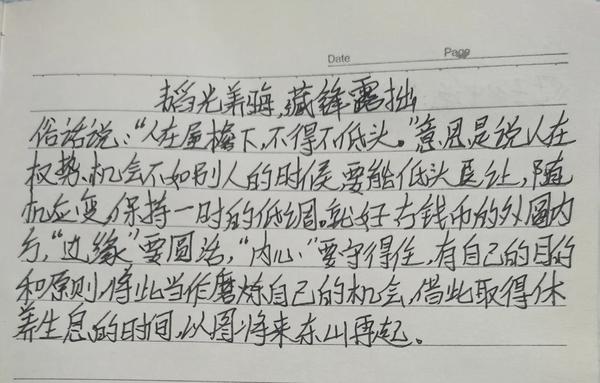 Date
Page
韬光养晦,藏锋露拙
俗话说:“人在屋檐下,不得不低头。”意思是说人在
权势、机会不如别人的时候,要能低头退让,随
机应变,保持一时的低调。就好古钱币的外圆内
方,“边缘”要圆活,“内心”要守得住,有自己的目的
和原则,将此当作磨炼自己的机会,借此取得休
养生息的时间,以图将来东山再起。